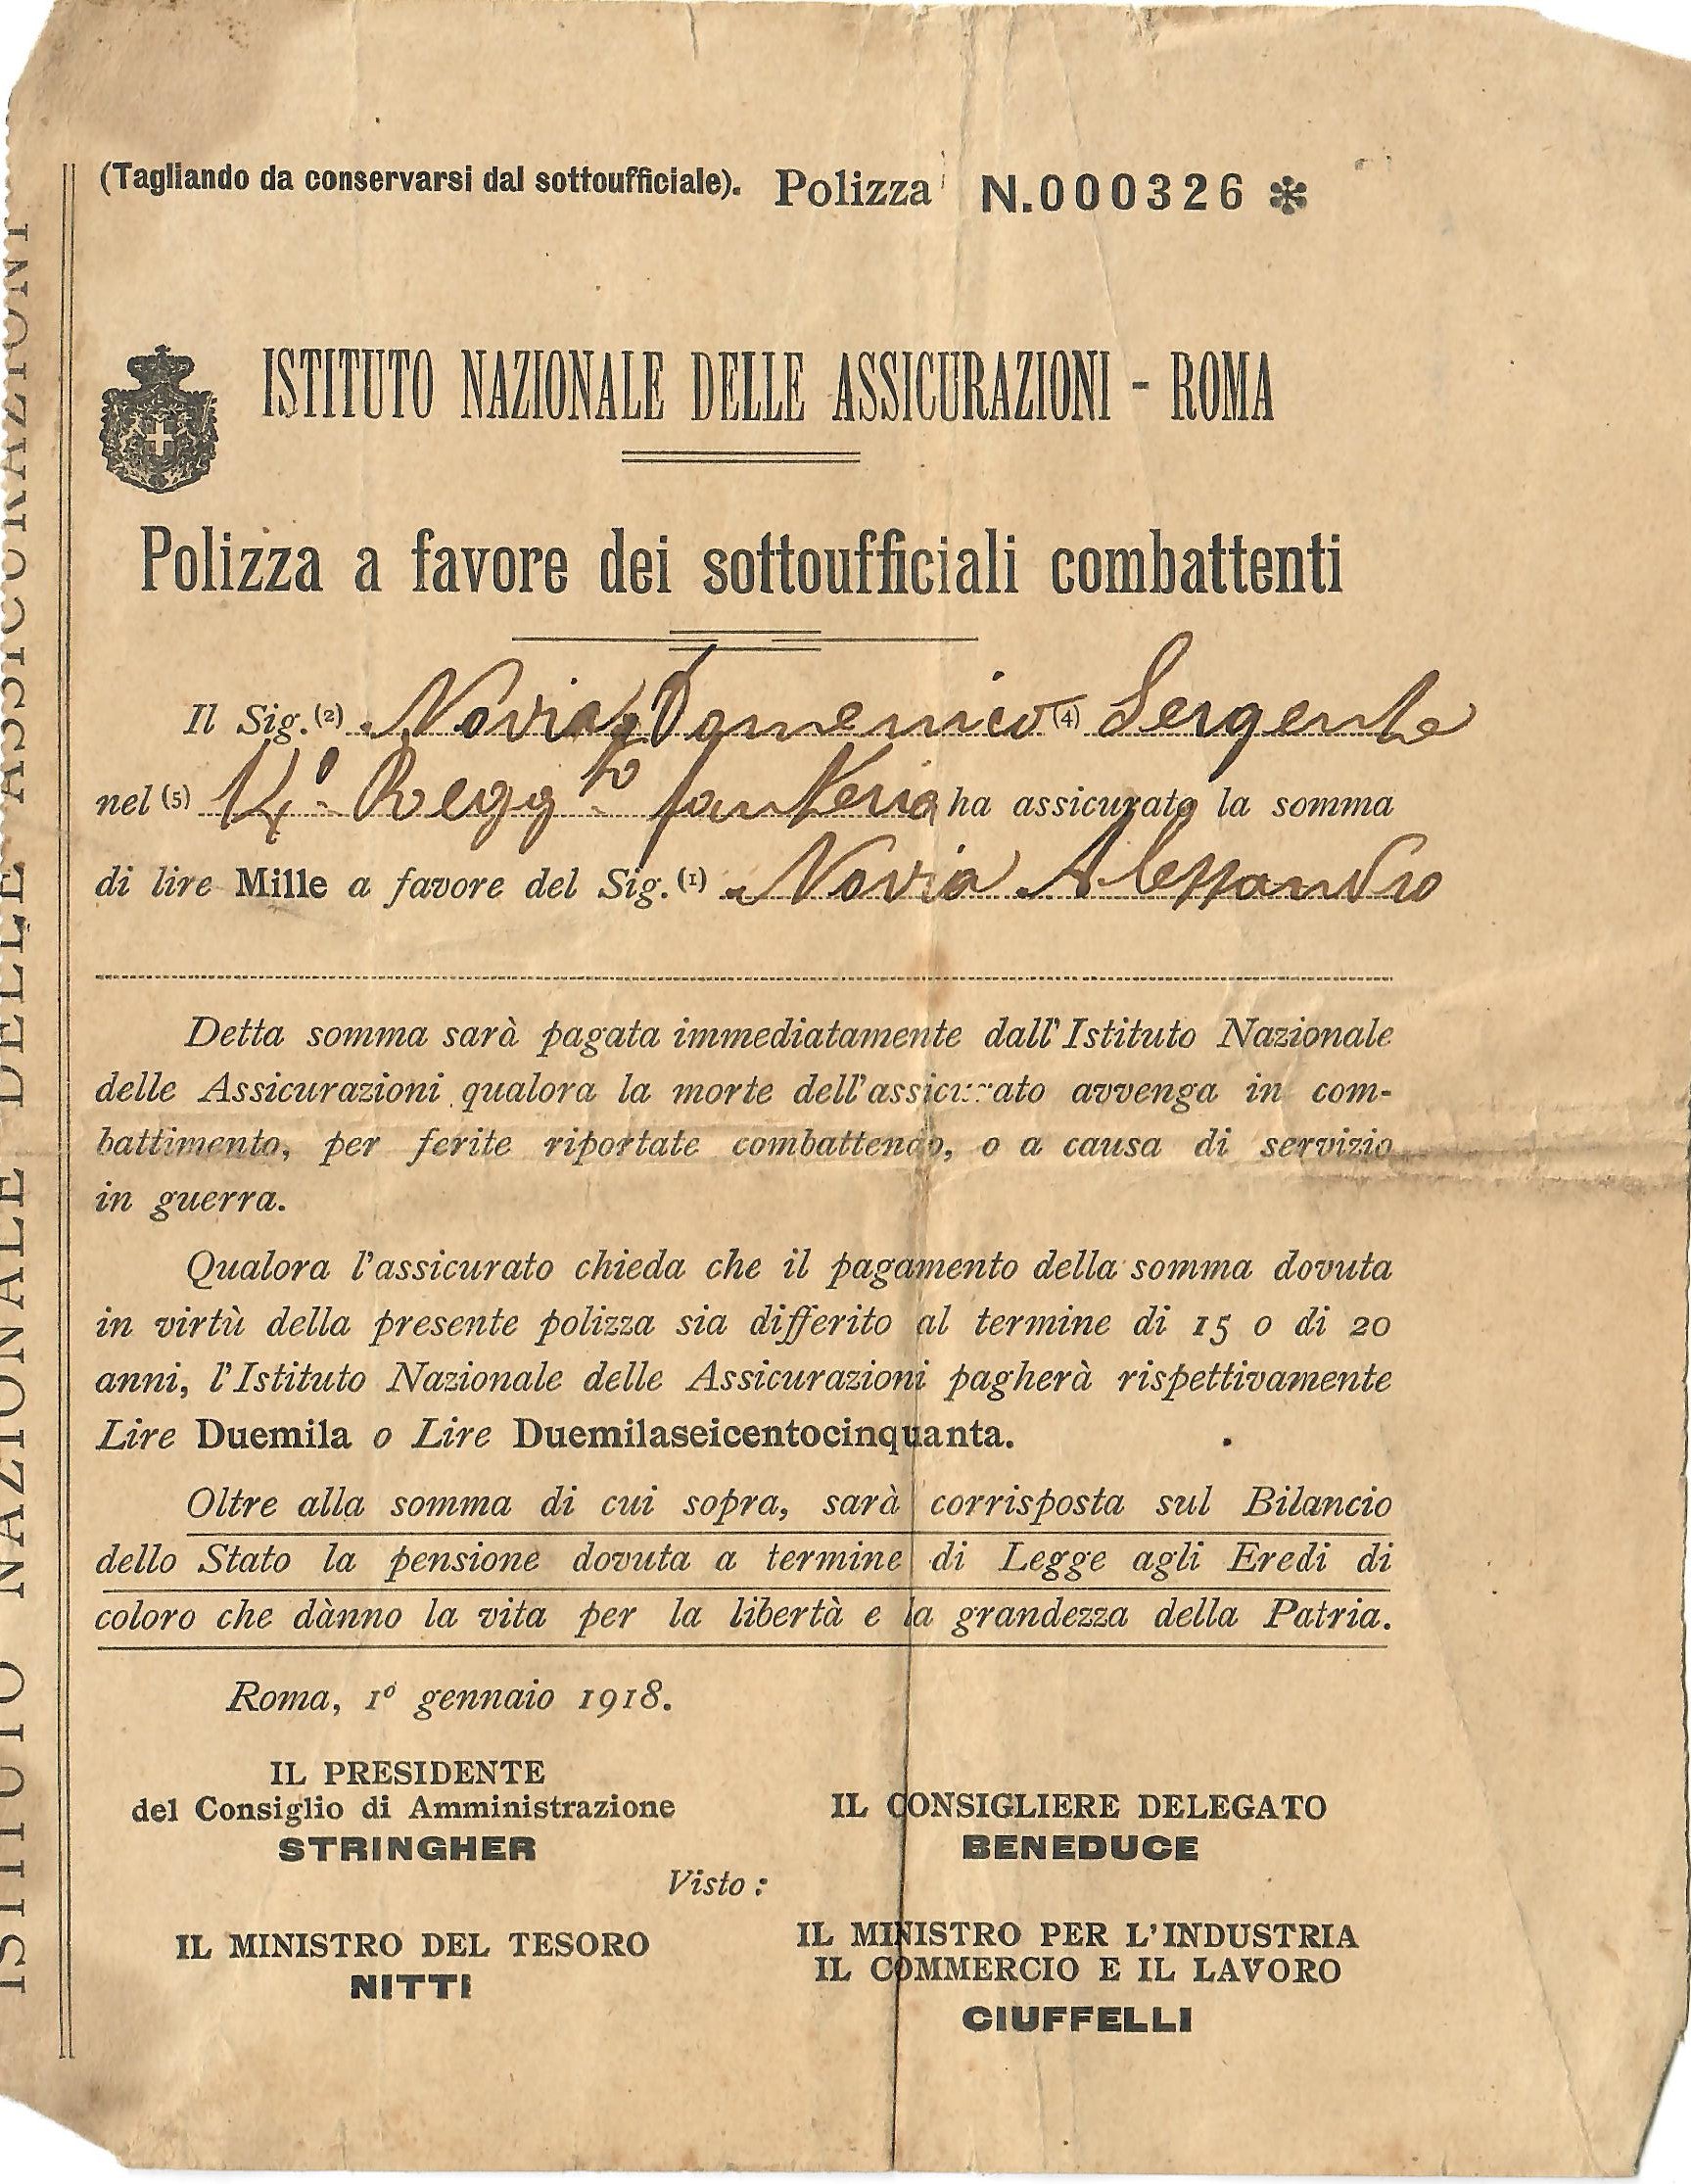 (Tagliando da conservarsi dal sottoufficiale). Polizza N.000326 *
ISTITUTO NAZIONALE DELLE ASSICURAZIONI - ROMA
Polizza a favore dei sottoufficiali combattenti
Il Sig. (2) Novia Domenico (4) Sergente
nel (5) 14º Reggto fanteria ha assicurato la somma
di lire Mille a favore del Sig. (1) Novia Alessandro
Detta somma sarà pagata immediatamente dall'Istituto Nazionale
delle Assicurazioni qualora la morte dell'assicurato avvenga in com-
battimento, per ferite riportate combattendo, o a causa di servizio
in guerra.
Qualora l'assicurato chieda che il pagamento della somma dovuta
in virtù della presente polizza sia differito al termine di 15 o di 20
anni, l'Istituto Nazionale delle Assicurazioni pagherà rispettivamente
Lire Duemila o Lire Duemilaseicentocinquanta.
Oltre alla somma di cui sopra, sarà corrisposta sul Bilancio
dello Stato la pensione dovuta a termine di Legge agli Eredi di
coloro che dànno la vita per la libertà e la grandezza della Patria.
Roma, 1º gennaio 1918.
IL PRESIDENTE
del Consiglio di Amministrazione
STRINGHER
IL CONSIGLIERE DELEGATO
BENEDUCE
Visto :
IL MINISTRO DEL TESORO
NITTI
IL MINISTRO PER L'INDUSTRIA
IL COMMERCIO E IL LAVORO
CIUFFELLI
ISTITUTO NAZIONALE DELLE ASSICURAZIONI